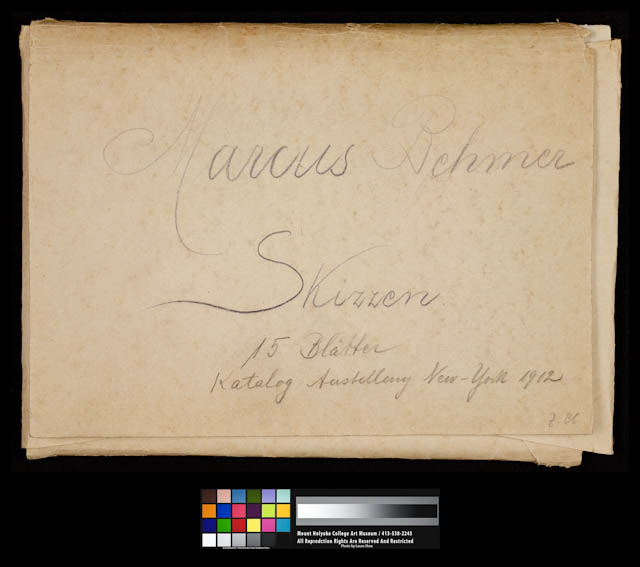 Marcus Behmer
Skizzen
15 Blätter
Katalog Austellung New-York 1912
Mount Holyoke College Art Museum / 413-538-2245
All Reproduction Rights Are Reserved And Restricted
Photo by Laura Shea